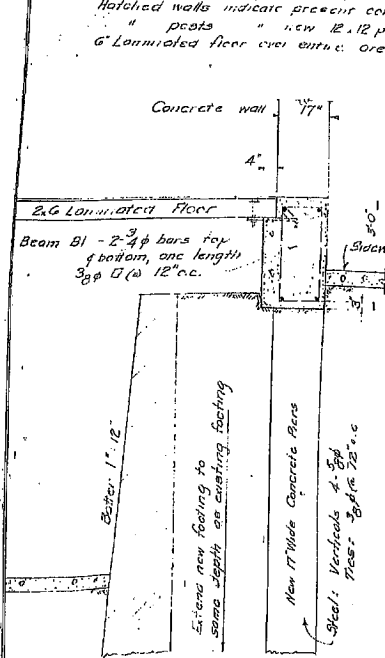 Hatched walls indicate present con
" posts " new 12 x 12 p
6" Laminated floor over entire are
Concrete wall 17"
4"
2x6 Laminated Floor
Beam B1 - 2-3/4 φ bars top
& bottom, one length
3/8 φ @ 12" o.c.
3'-0"
Sidew
3"
Batter 1" : 12"
Extend new footing to
same depth as existing footing
New 17" Wide Concrete Piers
Steel: Verticals 4-5/8 φ
Ties: 3/8 φ @ 12" o.c